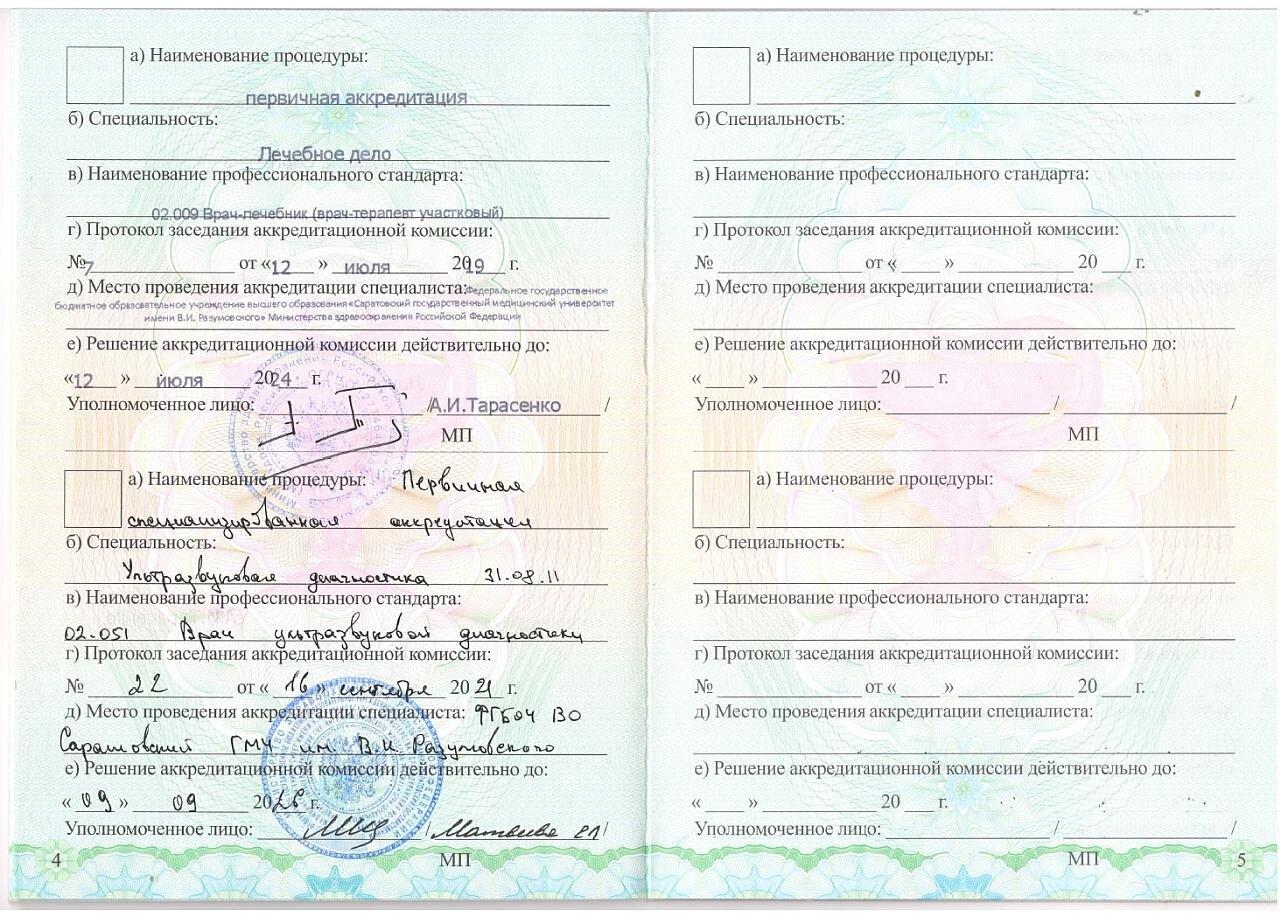 а) Наименование процедуры:
первичная аккредитация
б) Специальность:
Лечебное дело
в) Наименование профессионального стандарта:
02.009 Врач-лечебник (врач-терапевт участковый)
г) Протокол заседания аккредитационной комиссии:
№ 7 от «12» июля 2019 г.
д) Место проведения аккредитации специалиста: Федеральное государственное
бюджетное образовательное учреждение высшего образования «Саратовский государственный медицинский университет
имени В.И. Разумовского» Министерства здравоохранения Российской Федерации
е) Решение аккредитационной комиссии действительно до:
«12» июля 2024 г.
Уполномоченное лицо: /А.И.Тарасенко /
МП
а) Наименование процедуры: Первичная
специализированная аккредитация
б) Специальность:
Ультразвуковая диагностика 31.08.11
в) Наименование профессионального стандарта:
02.051 Врач ультразвуковой диагностики
г) Протокол заседания аккредитационной комиссии:
№ 22 от «16» сентября 2021 г.
д) Место проведения аккредитации специалиста: ФГБОУ ВО
Саратовский ГМУ им. В.И. Разумовского
е) Решение аккредитационной комиссии действительно до:
«09» 09 20 г.
Уполномоченное лицо: / /
4 МП
а) Наименование процедуры:
б) Специальность:
в) Наименование профессионального стандарта:
г) Протокол заседания аккредитационной комиссии:
№ от « » 20 г.
д) Место проведения аккредитации специалиста:
е) Решение аккредитационной комиссии действительно до:
« » 20 г.
Уполномоченное лицо: / /
МП
а) Наименование процедуры:
б) Специальность:
в) Наименование профессионального стандарта:
г) Протокол заседания аккредитационной комиссии:
№ от « » 20 г.
д) Место проведения аккредитации специалиста:
е) Решение аккредитационной комиссии действительно до:
« » 20 г.
Уполномоченное лицо: / /
МП 5